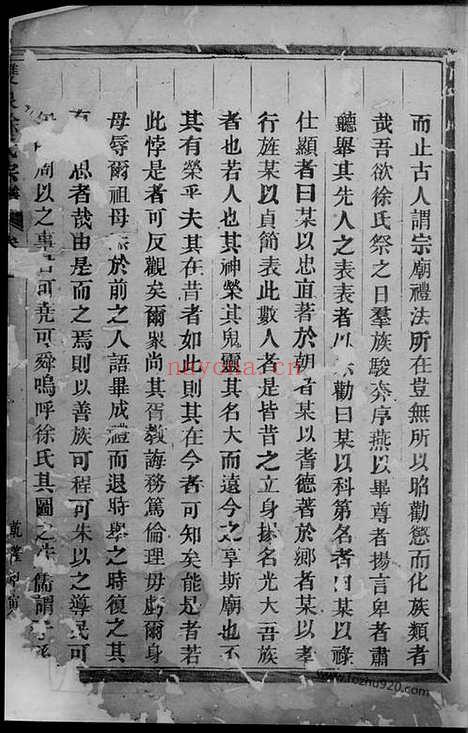 而止古人謂宗廟禮法所在豈無所以昭勸懲而化族類者
哉吾欲徐氏祭之日羣族駿奔序燕以畢尊者揚言卑者肅
聽舉其先人之表表者以勸曰某以科第名者曰某以祿
仕顯者曰某以忠直著於朝者某以耆德著於鄉者某以孝
行旌某以貞簡表此數人者是皆昔之立身揚名光大吾族
者也若人也其神榮其鬼靈其名大而遠今之享斯廟也不
其有榮乎夫其在昔者如此則其在今者可知矣能是者若
此悖是者可反觀矣爾衆尚其胥教誨務篤倫理毋虧爾身
母辱爾祖母於前之人語畢成禮而退時舉之時復之其
思者哉由是而之焉則以善族可程可朱以之導民可
以之事君可堯可舜嗚呼徐氏其圖之儒謂
徐氏宗譜
乾隆
nayona.cn
www.fozhu920.com